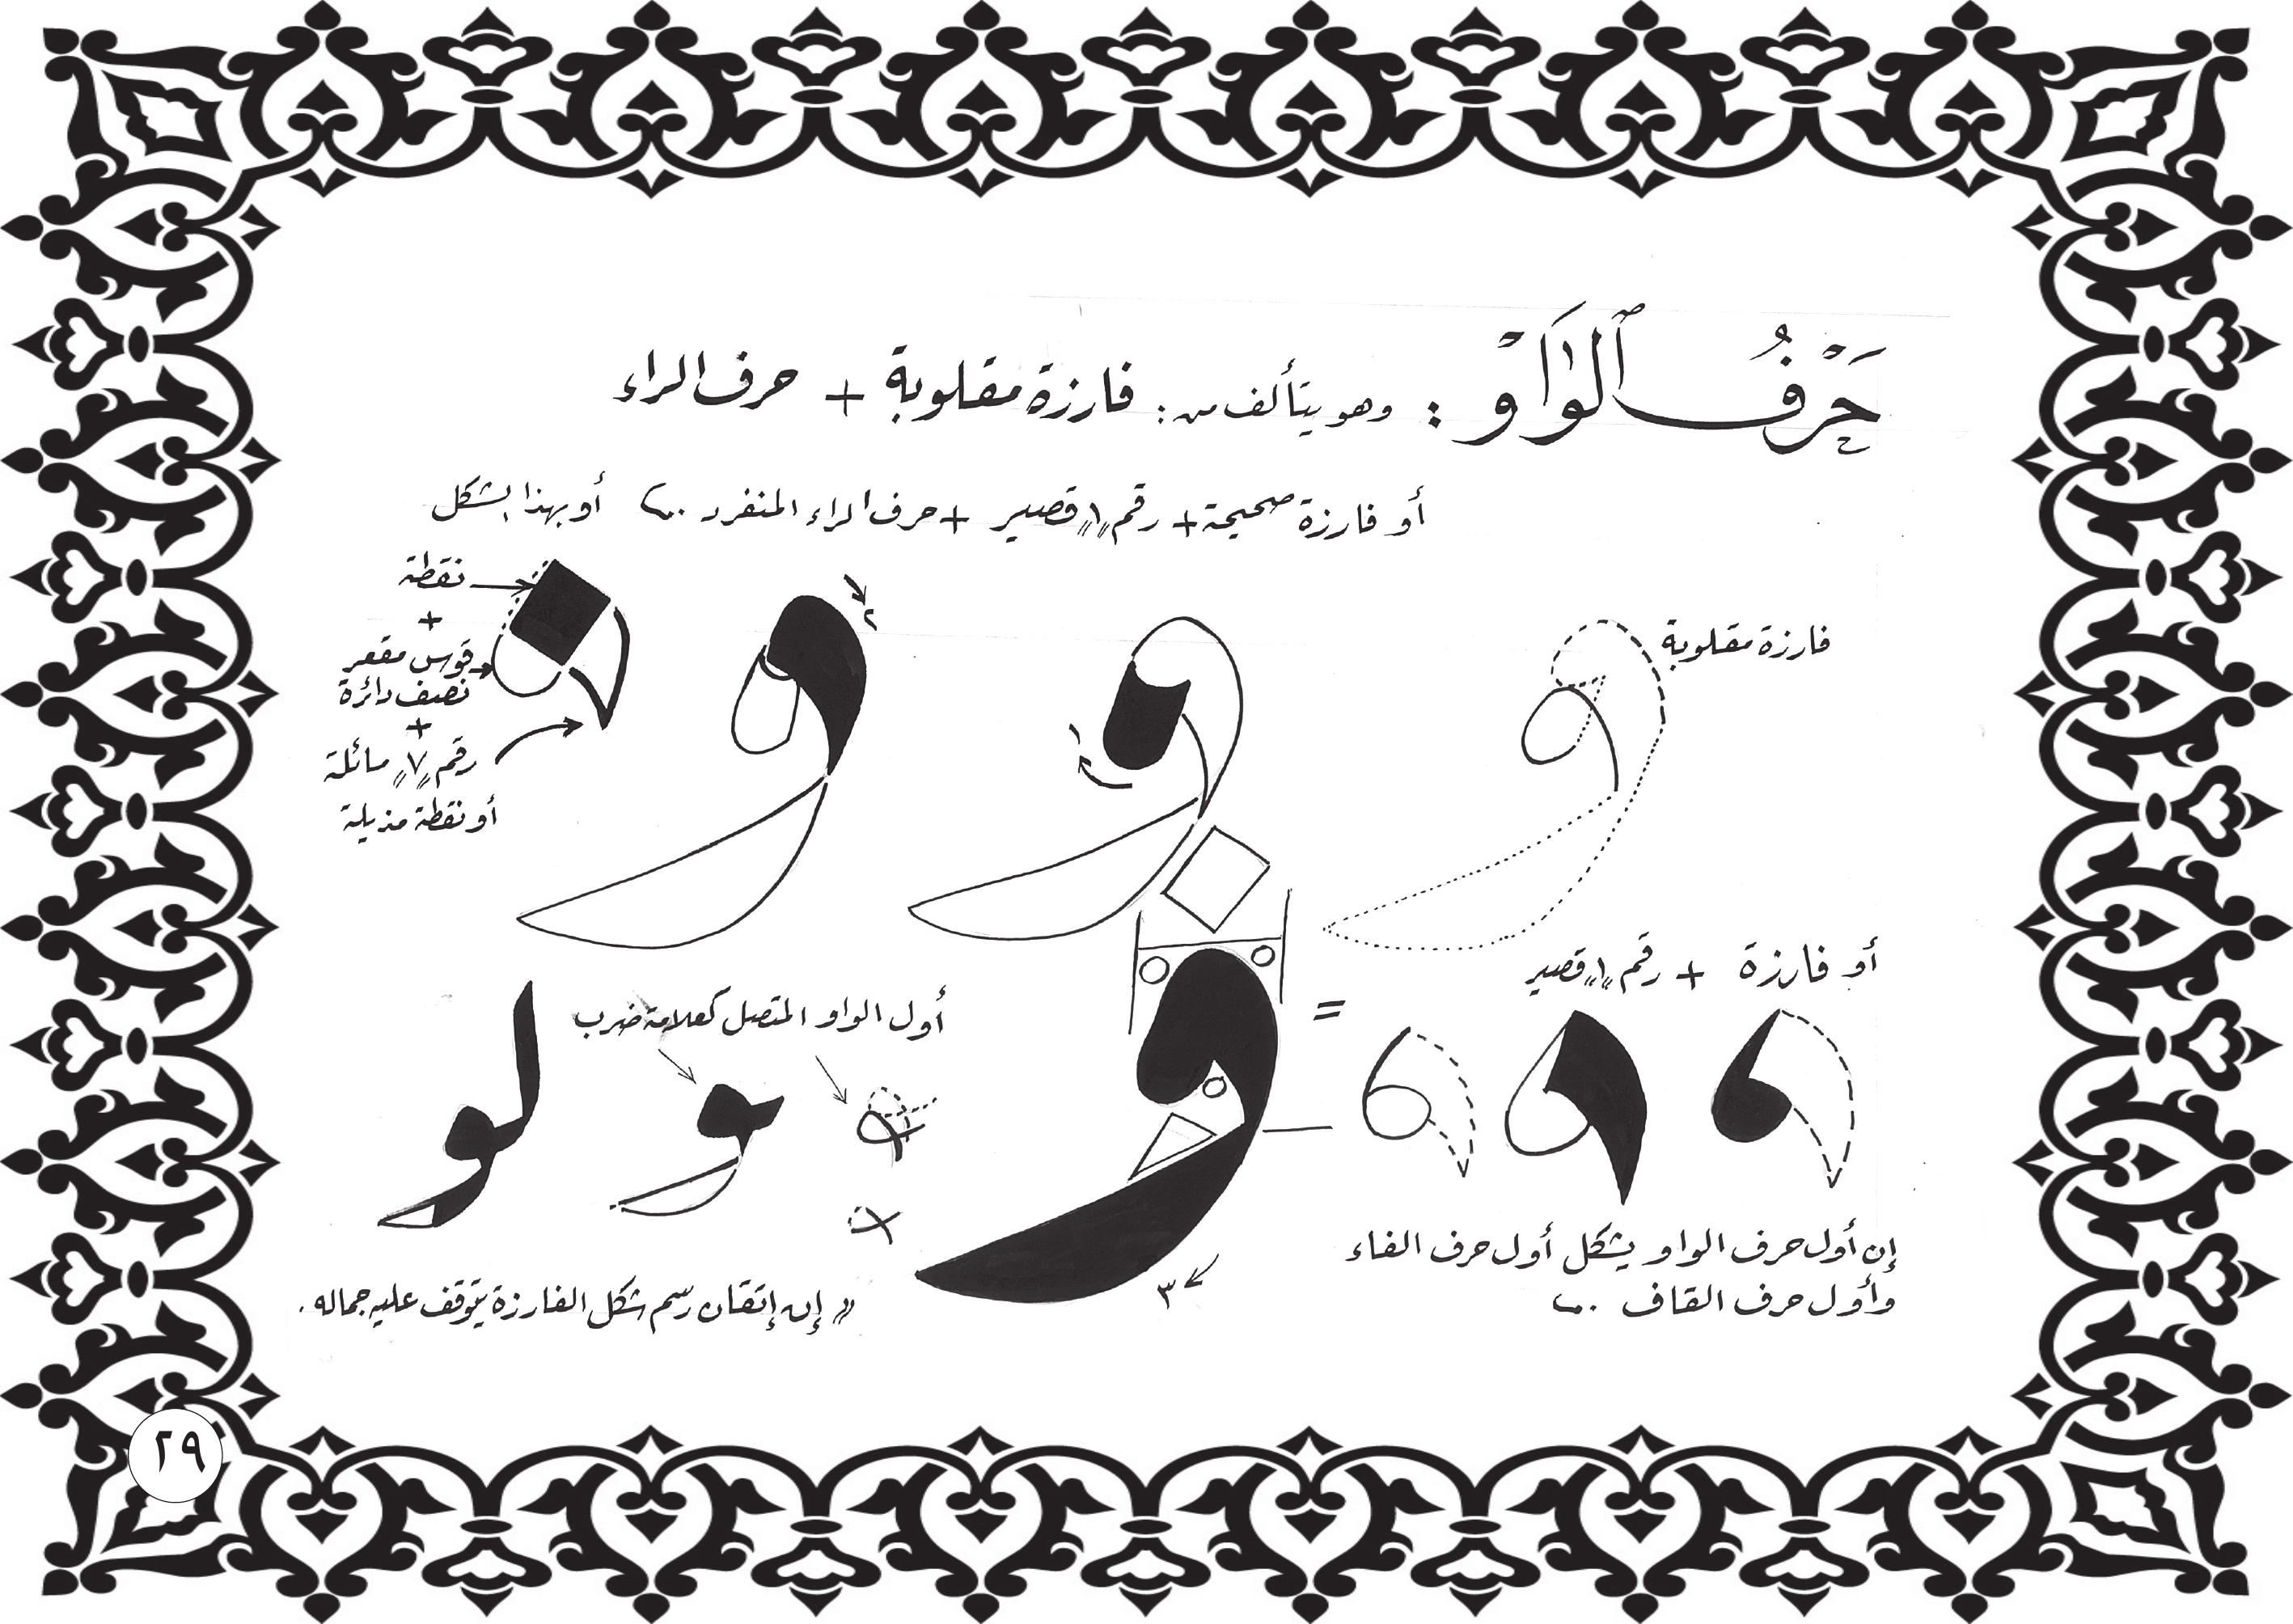 حَرْفُ ٱلْوَاوْ : وهو يتألف من : فارزة مقلوبة + حرف الراء
أو فارزة صحيحة + رقم "١" قصير + حرف الراء المنفرد .. أو بهذا الشكل
فارزة مقلوبة
١
٢
نقطة
+
قوس مقعر
نصف دائرة
+
رقم "٧" مائلة
أو نقطة مذيلة
أو فارزة + رقم "١" قصير
=
أول الواو المتصل كعلامة ضرب
٣
إن أول حرف الواو يشكل أول حرف الفاء
وأول حرف القاف ..
" إن إتقان رسم شكل الفارزة يتوقف عليه جماله .
٢٩